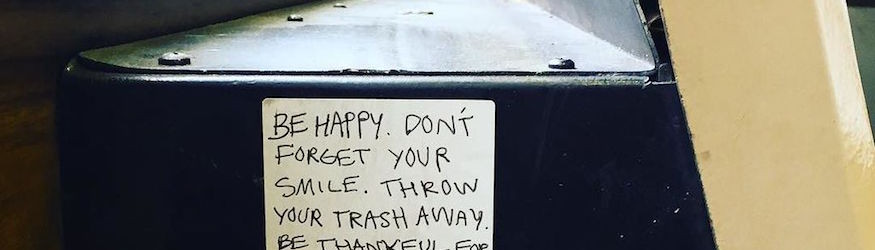 BE HAPPY. DON'T
FORGET YOUR
SMILE. THROW
YOUR TRASH AWAY.
BE THANKFUL FOR